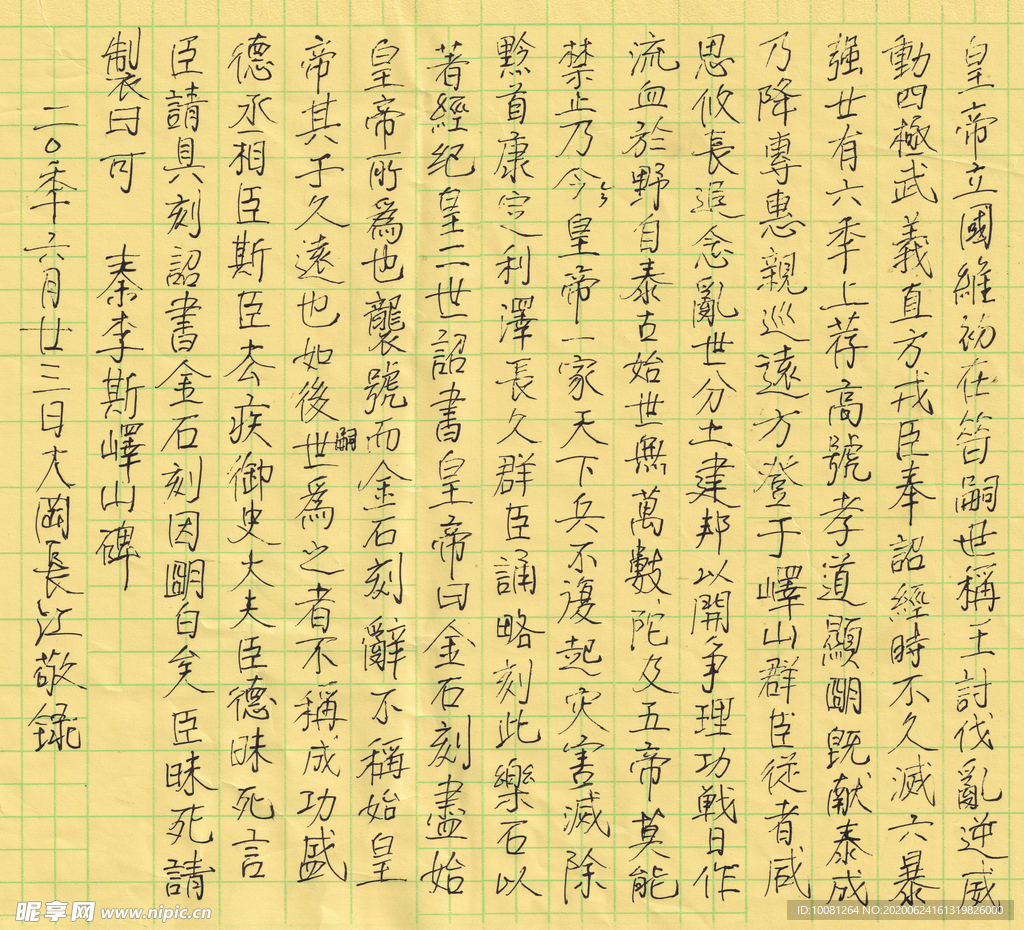 皇帝立國維初在昝嗣世稱王討伐亂逆威
動四極武義直方戎臣奉詔經時不久滅六暴
强廿有六年上荐高號孝道顯明既献泰成
乃降專惠親巡遠方登于嶧山群臣從者咸
思攸長追念亂世分土建邦以開争理功戰日作
流血於野自泰古始世無萬數陀及五帝莫能
禁止乃今皇帝一家天下兵不復起灾害滅除
黔首康定利澤長久群臣誦略刻此樂石以
著經紀皇二世詔書皇帝曰金石刻盡始
皇帝所爲也襲號而金石刻辭不稱始皇
帝其于久遠也如後嗣世爲之者不稱成功盛
德丞相臣斯臣去疾御史大夫臣德昧死言
臣請具刻詔書金石刻因明白矣臣昧死請
製曰可 秦李斯嶧山碑
二〇年六月廿三日大岡長江敬録
昵享网 www.nipic.cn
ID:10081264 NO:20200624161319826000